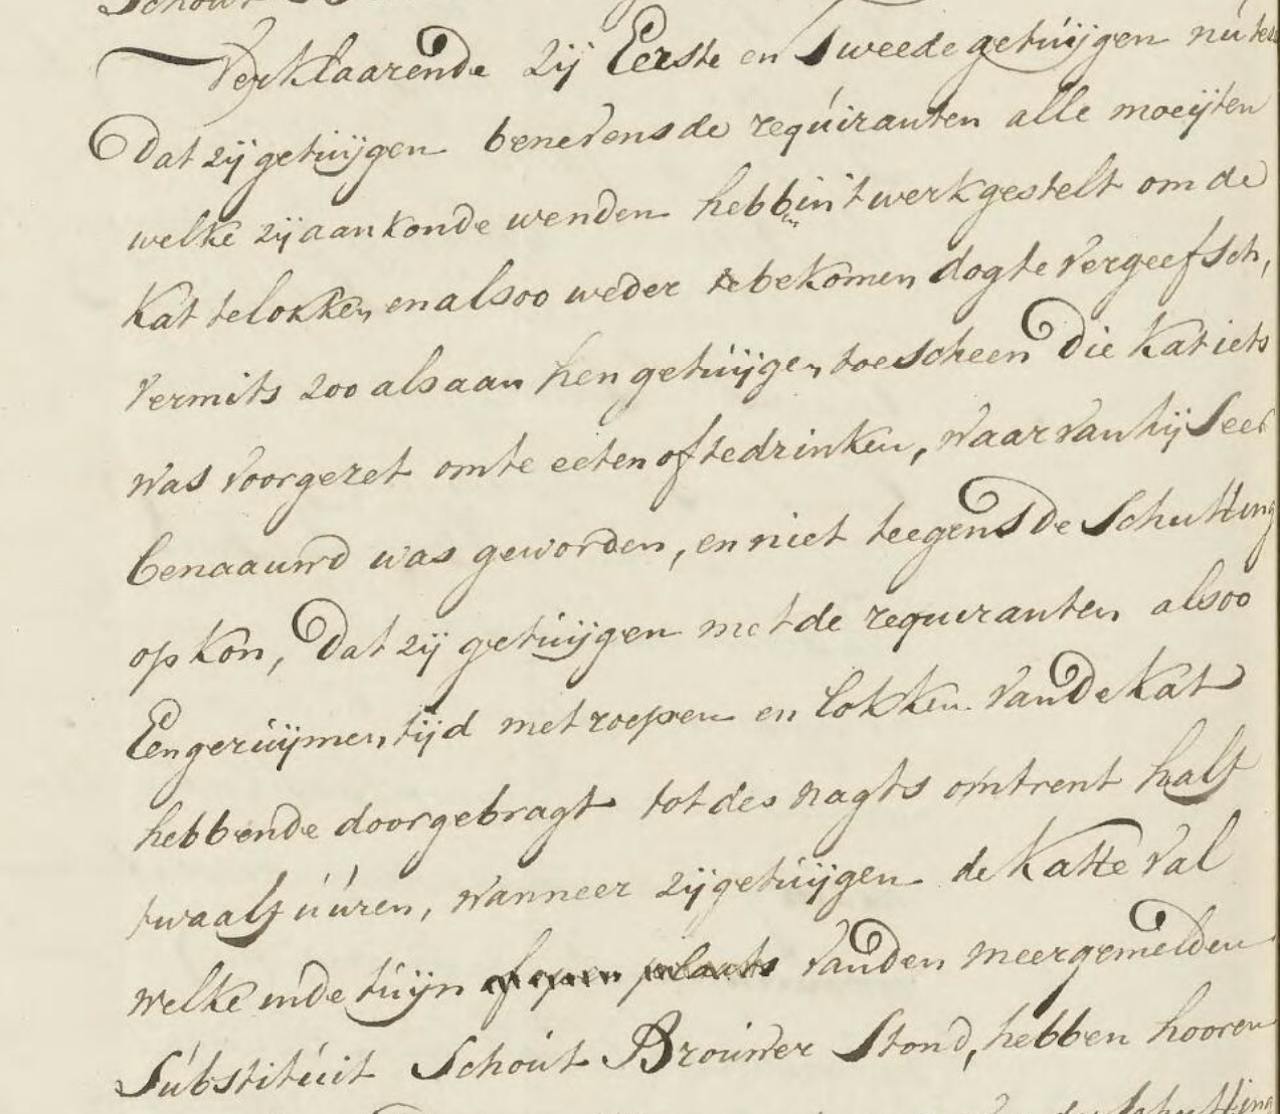 Schout
Verklaarende zij Eerste en Tweede getuijgen nu
Dat zij getuijgen benevens de requiranten alle moeijten
welke zij aankonde wenden hebben int werk gestelt om de
Kat te lokken en alsoo weder te bekomen dog te vergeefsch,
vermits zoo als aan hen getuijgen toescheen die Kat iets
was voorgezet om te eeten of te drinken, waar van hij Seer
benaauwd was geworden, en niet teegens de Schutting
op kon, Dat zij getuijgen met de requiranten alsoo
Een geruijmen tijd met roepen en lokken van de Kat
hebbende doorgebragt tot des nagts omtrent half
twaalf uuren, wanneer zij getuijgen de Katte val
welke in de tuijn of open plaats van den meergemelden
Substituit Schout Brouwer Stond, hebben hooren
Schutting